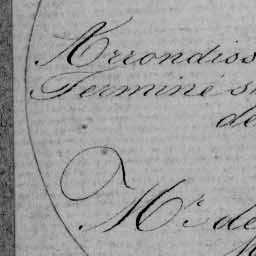 Arrondiss
Terminé s
de
Mr. de